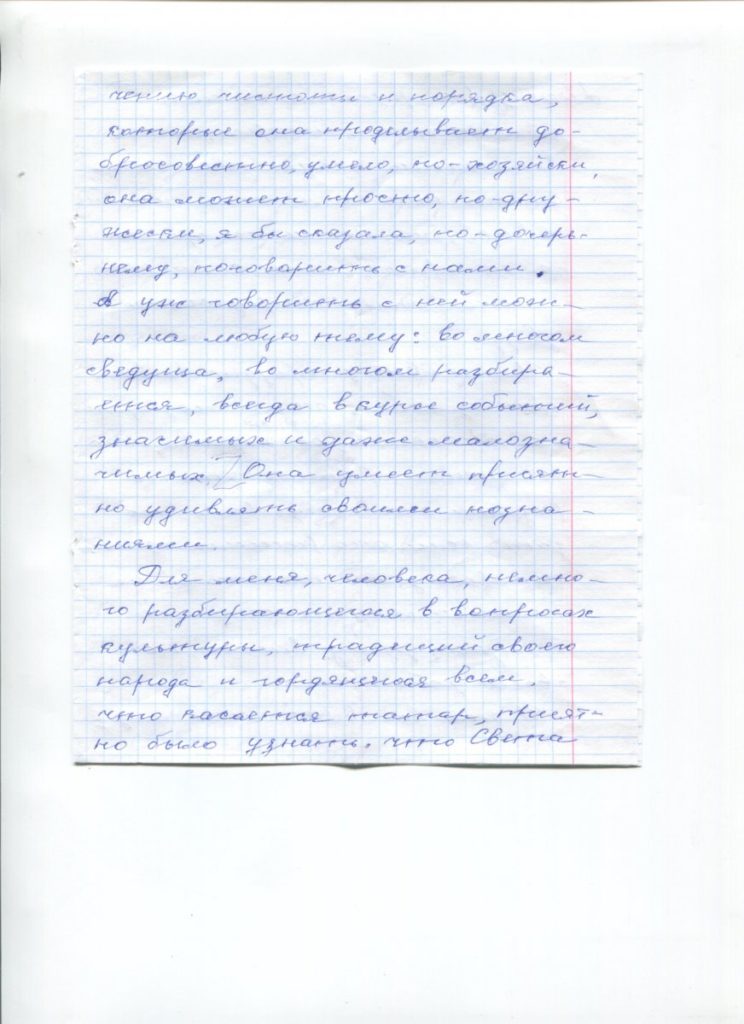 чению чистоты и порядка,
которые она проделывает до-
бросовестно, умело, по-хозяйски,
она может просто, по-дру-
жески, я бы сказала, по-дочерь-
нему, поговорить с нами.
А уж говорить с ней мож-
но на любую тему: во многом
сведуща, во многом разбира-
ется, всегда в курсе событий,
значимых и даже малозна-
чимых. Она умеет прият-
но удивлять своими позна-
ниями.
Для меня, человека, немно-
го разбирающегося в вопросах
культуры, традиций своего
народа и гордящегося всем,
что касается татар, прият-
но было узнать, что Света